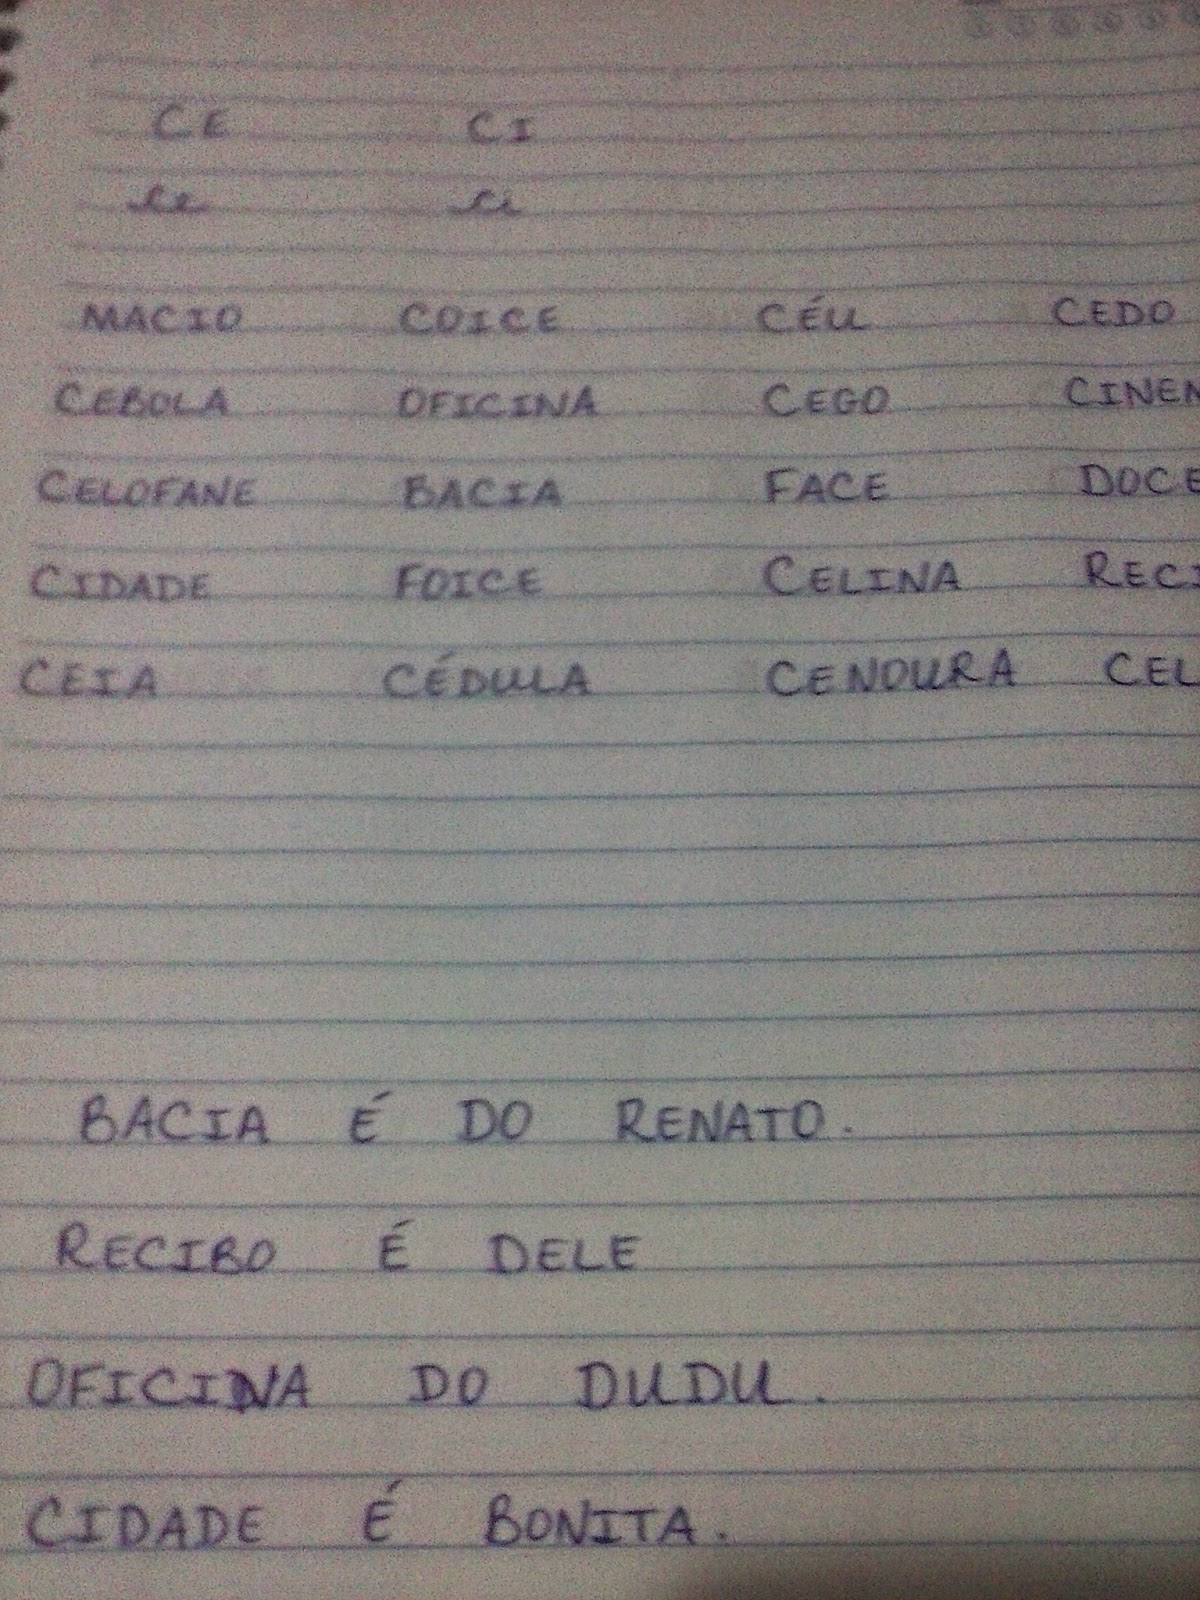 CE CI
ce ci
MACIO COICE CÉU CEDO
CEBOLA OFICINA CEGO CINEM
CELOFANE BACIA FACE DOCE
CIDADE FOICE CELINA RECI
CEIA CÉDULA CENOURA CEL
BACIA É DO RENATO.
RECIBO É DELE
OFICINA DO DUDU.
CIDADE É BONITA.